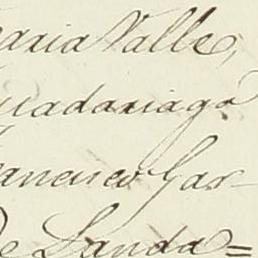 aria Valle,
uadariaga
rancisco Gar-
De Landa=